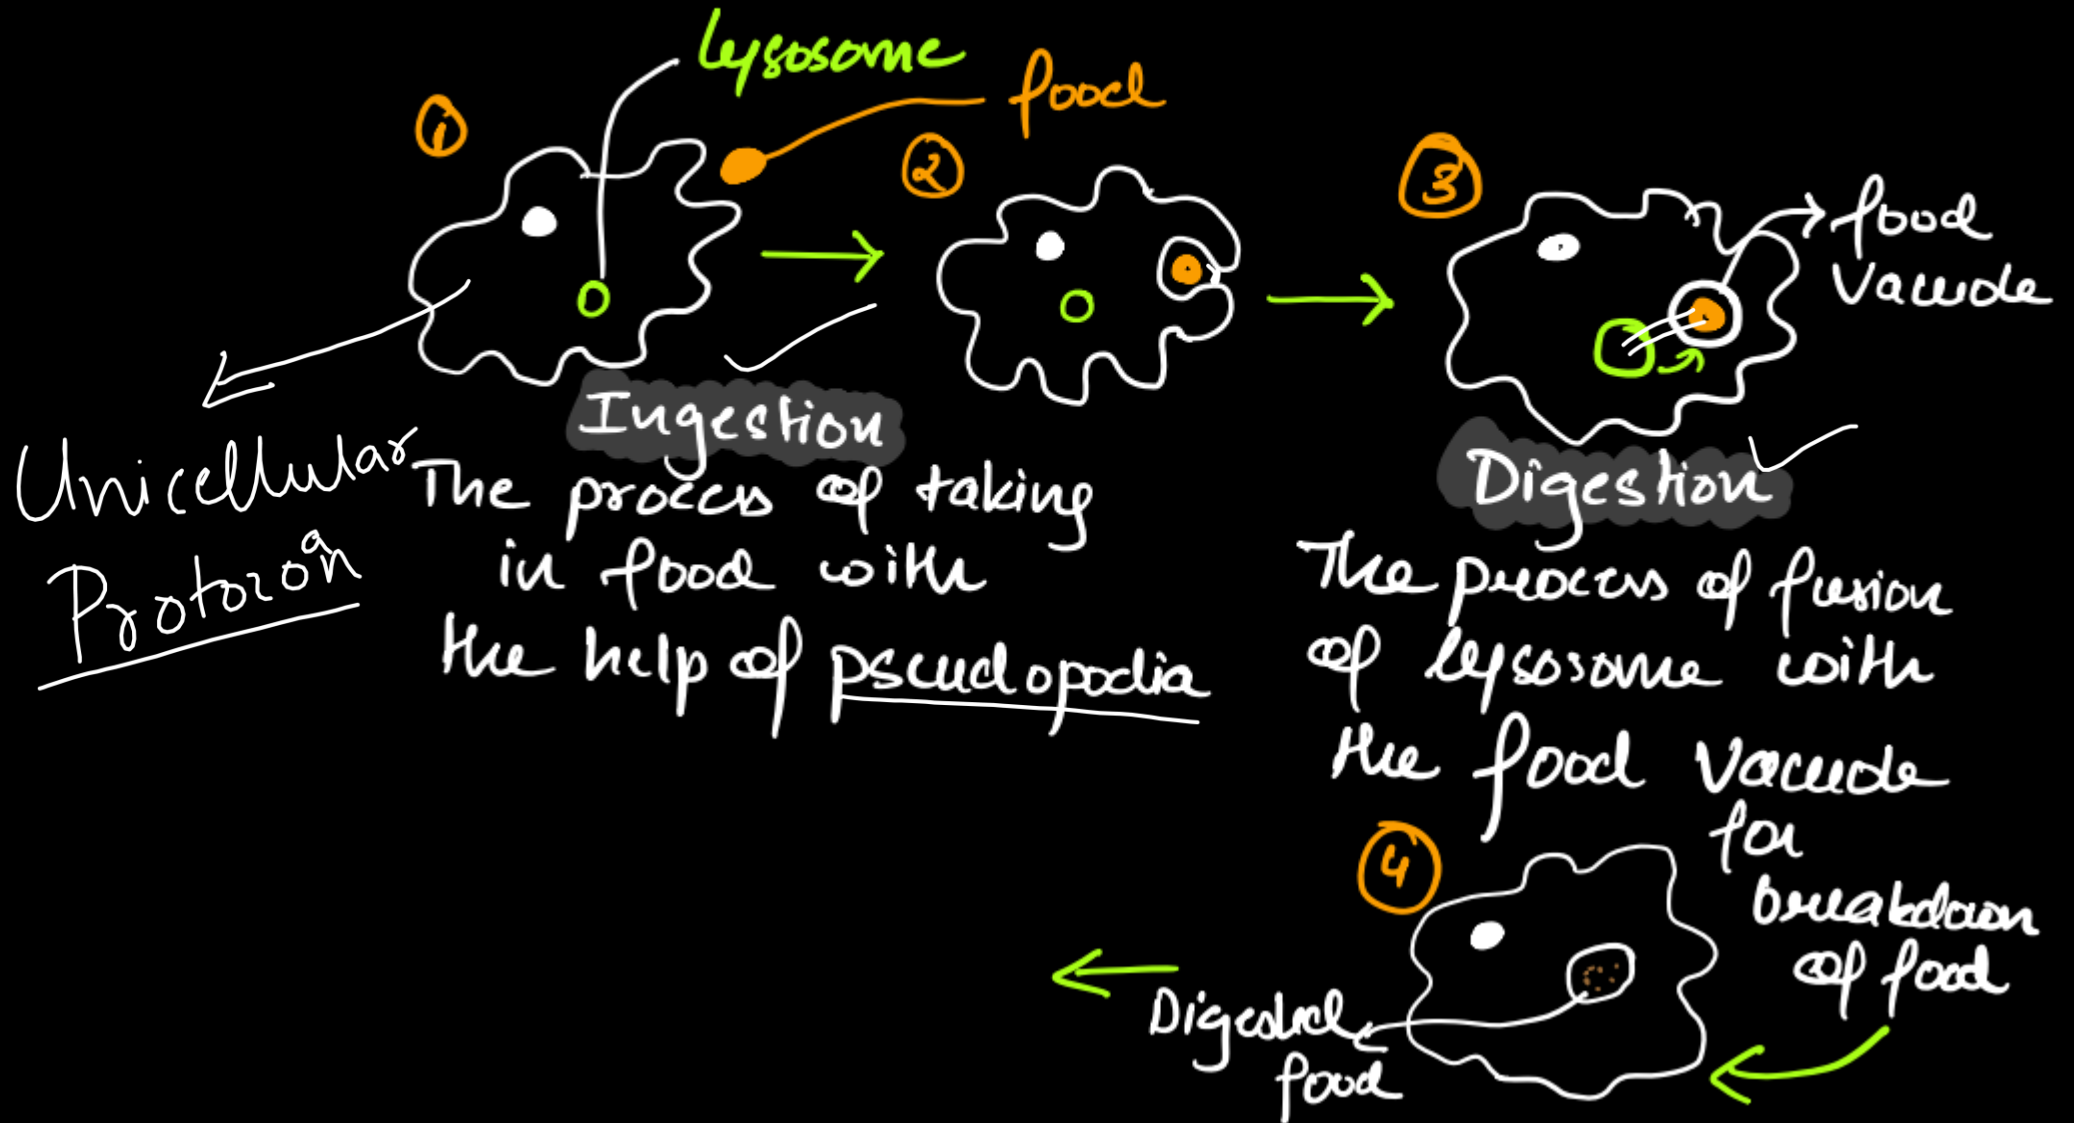 Lysosome
food
1
2
3
food
Vacuole
Unicellular
Protozoan
Ingestion
The process of taking
in food with
the help of pseudopodia
Digestion
The process of fusion
of lysosome with
the food vacuole
for
breakdown
of food
4
Digested
food